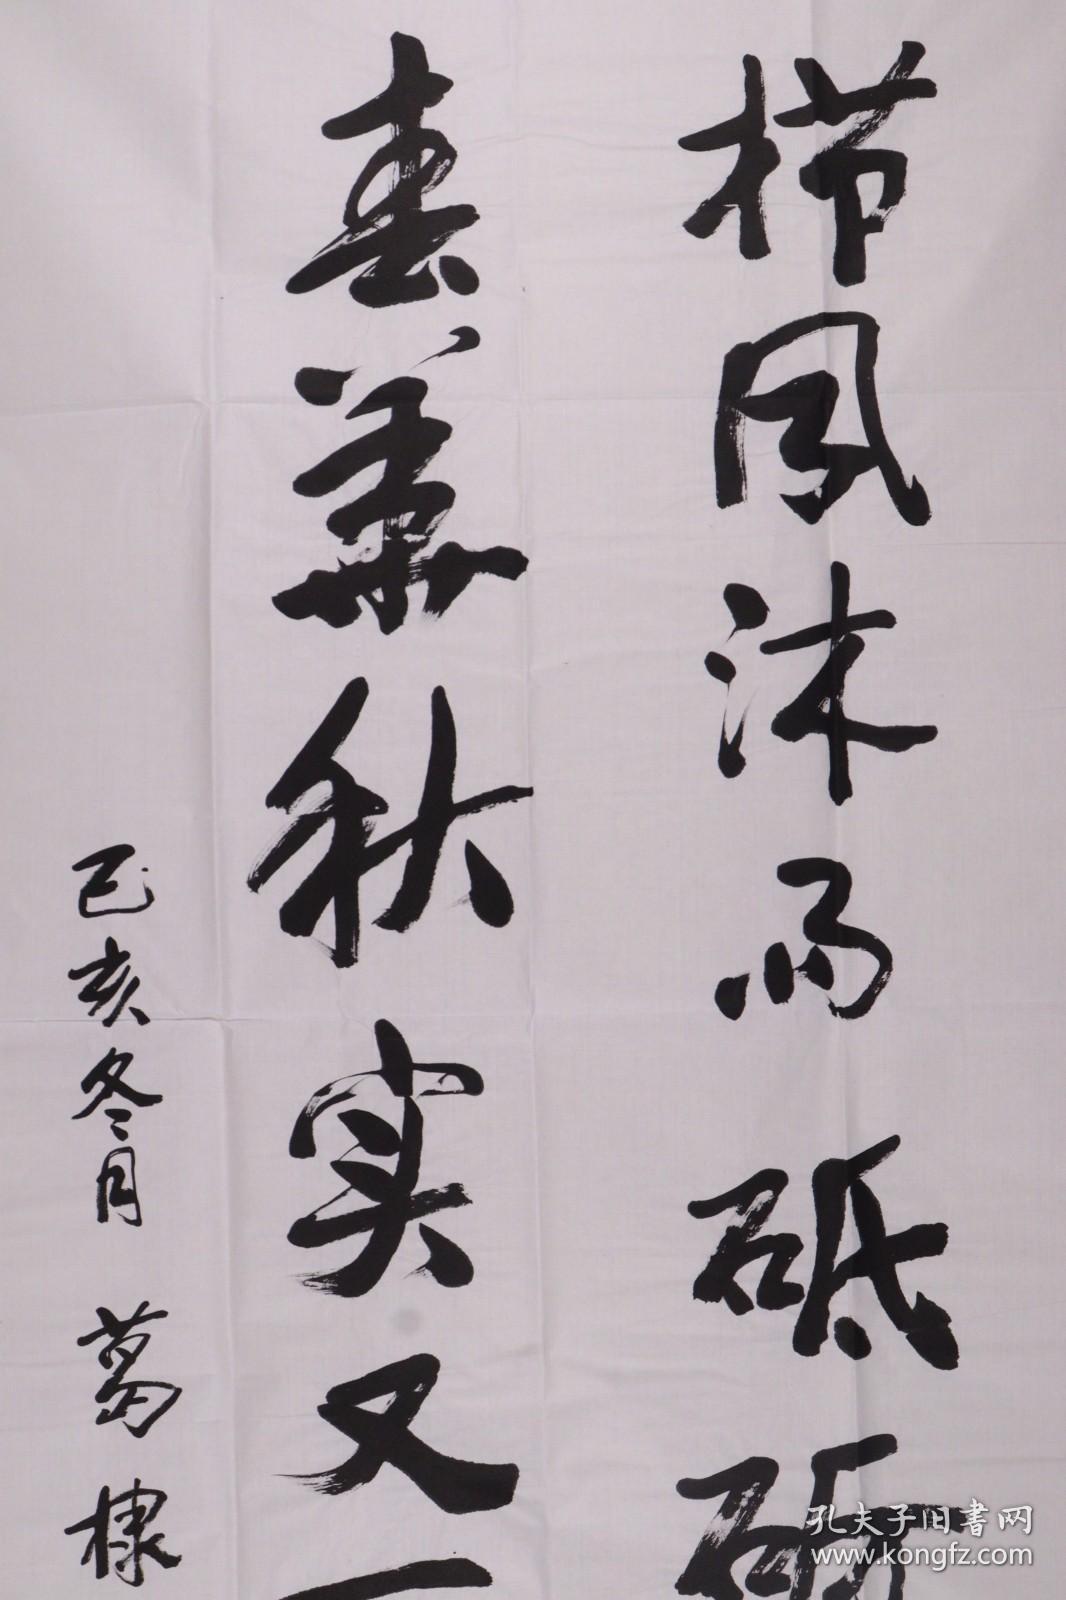 栉风沐雨砥砺
春华秋实又一
己亥冬月 葛棣
孔夫子旧书网
www.kongfz.com